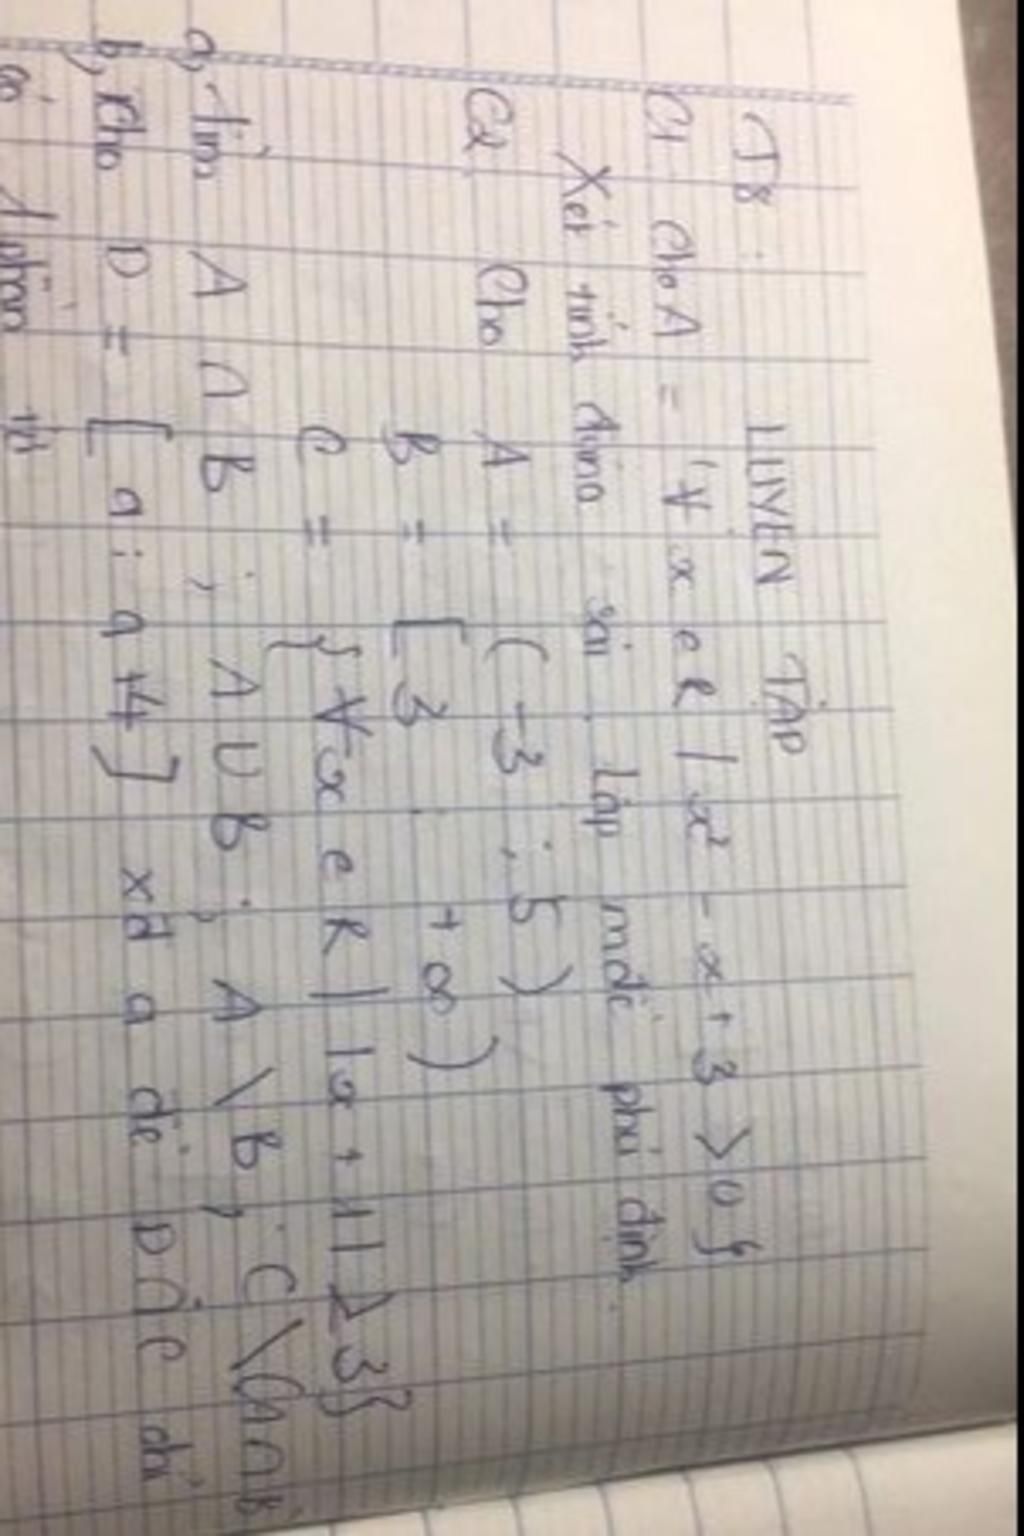 T8: LUYỆN TẬP
C1 Cho A = "∀ x e R / x² - x + 3 > 0 }
Xét tính đúng sai. Lập mđề phủ định.
C2 Cho A = (-3 ; 5)
B = [3 ; +∞)
C = {∀x e R / |x + 1| ≥ 3}
a, Tìm A ∩ B ; A ∪ B ; A \ B ; C \ A ∩ B
b, Cho D = [a ; a +4] xđ a để D ∩ C chỉ
có 1 phần tử